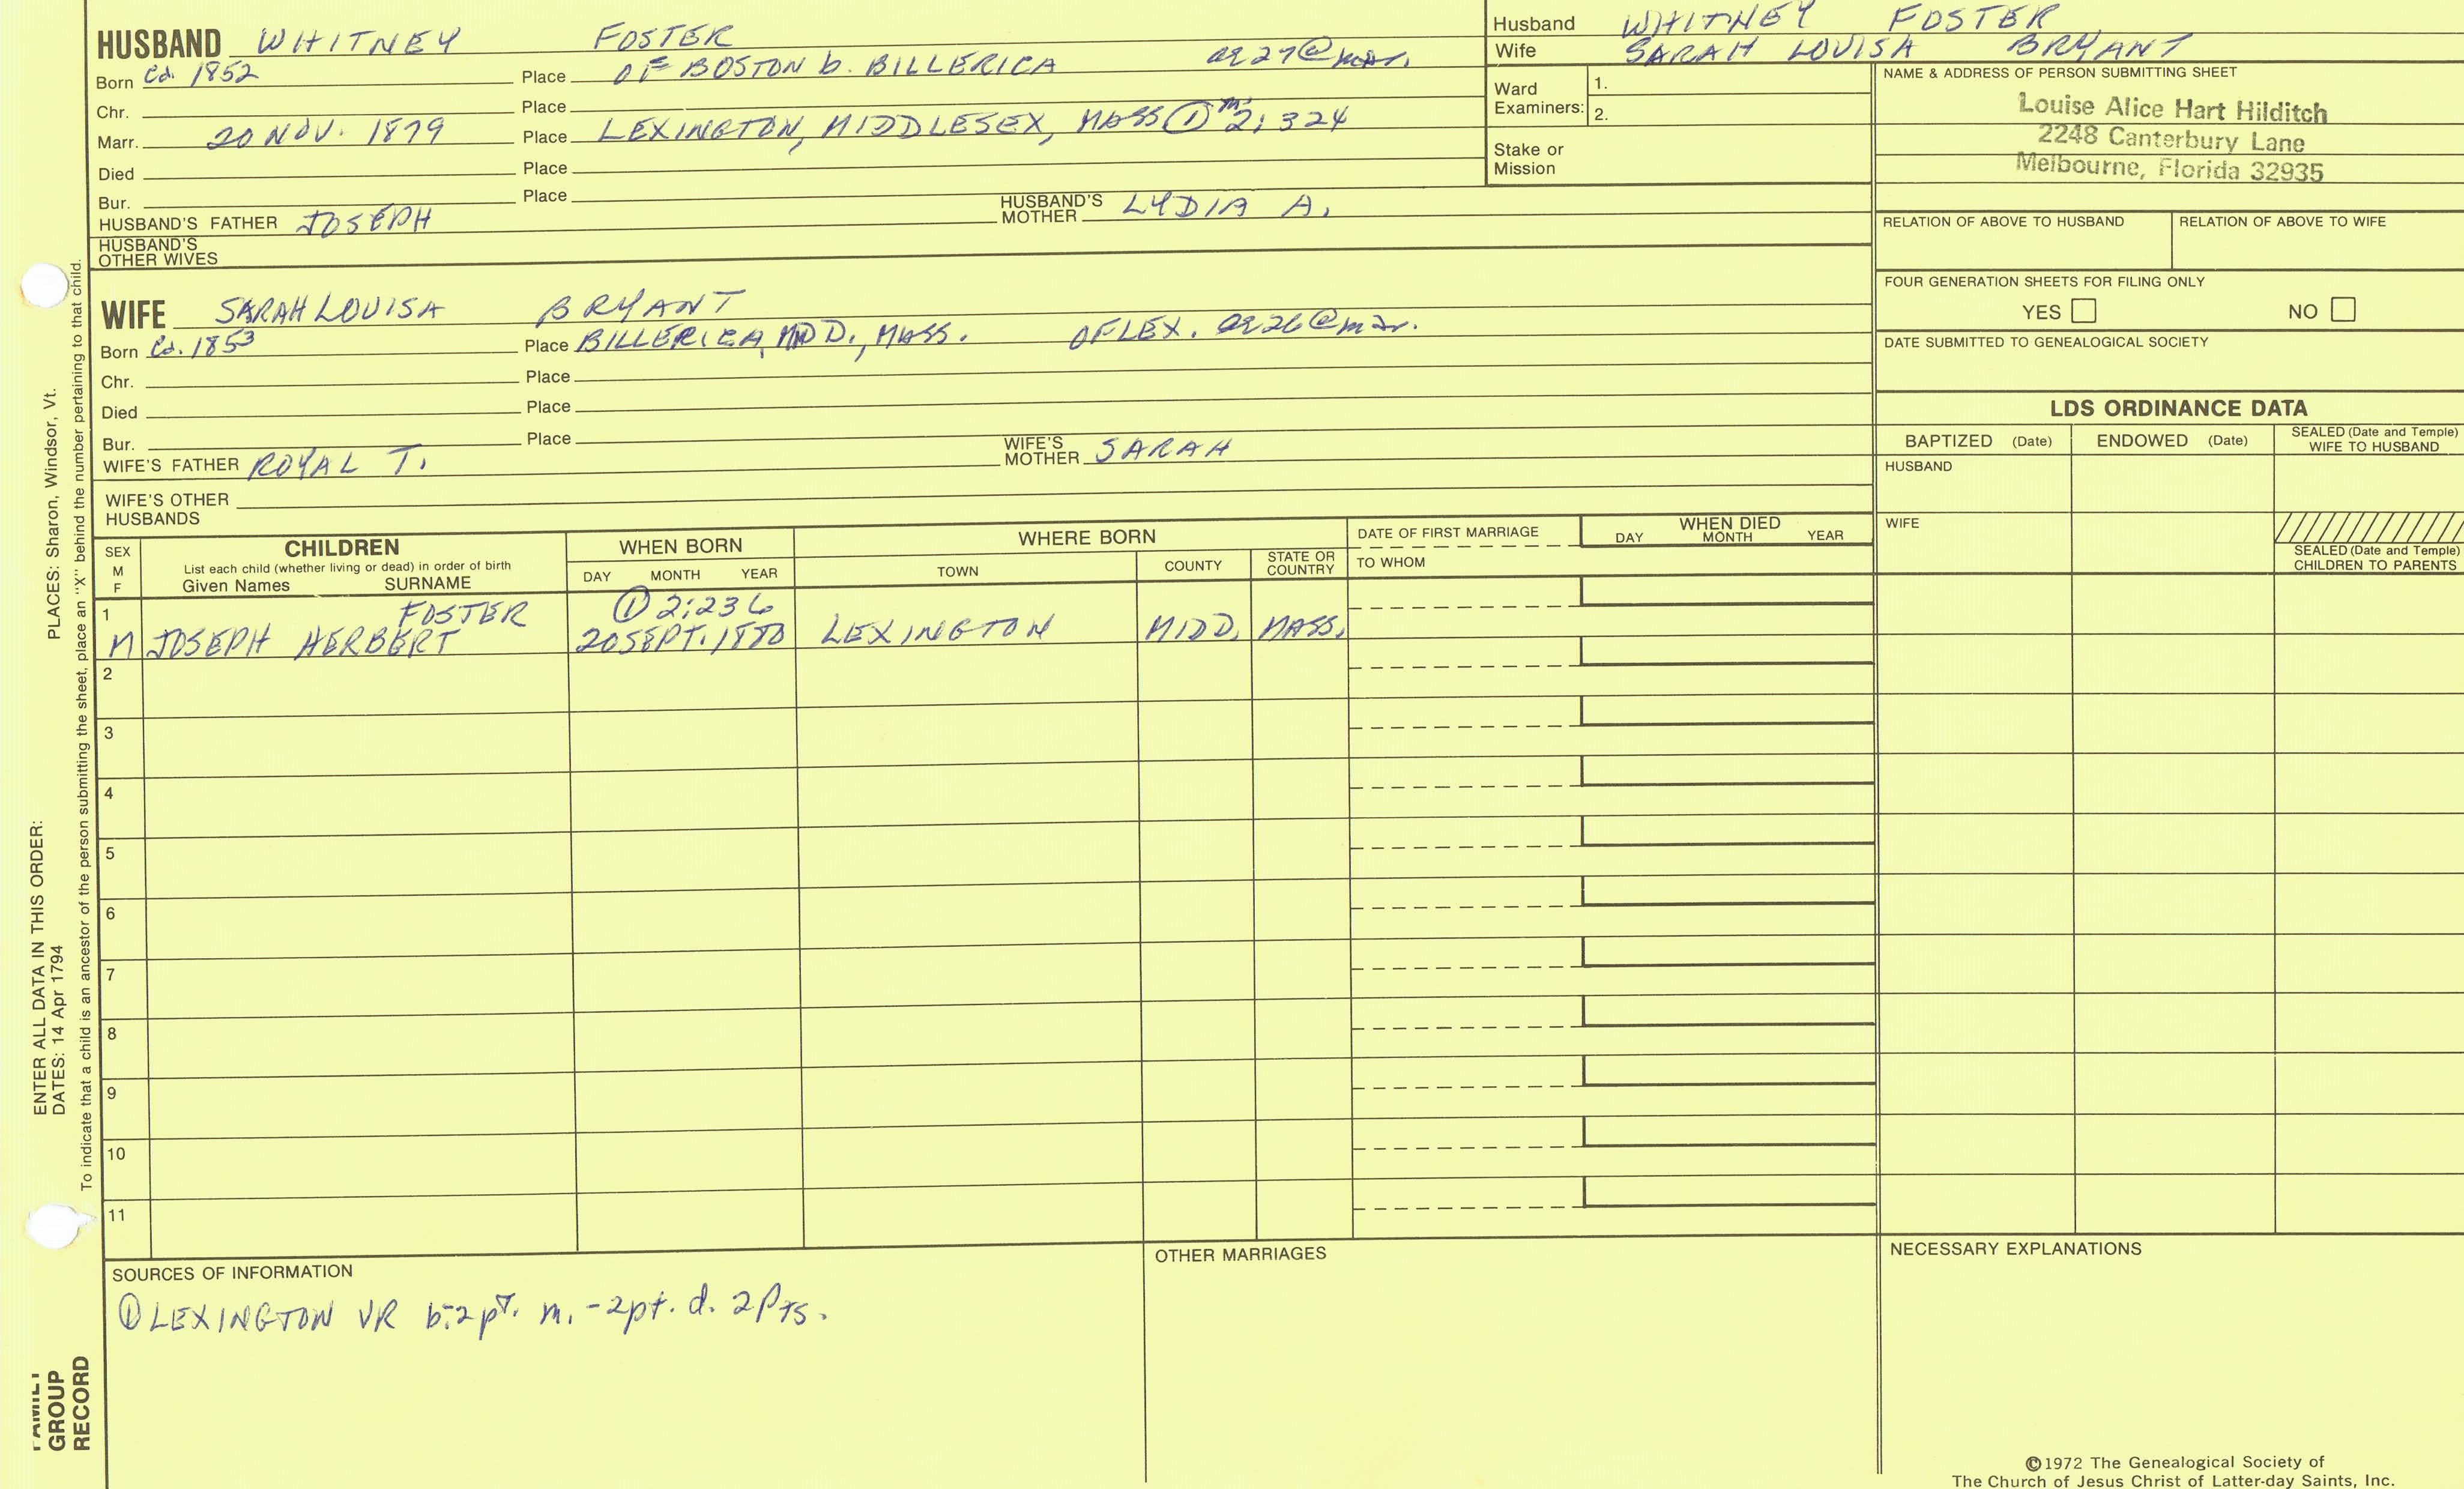 HUSBAND WHITNEY FOSTER
Born Ca. 1852 Place OF BOSTON b. BILLERICA ae 27@mar.
Chr. Place
Marr. 20 NOV. 1879 Place LEXINGTON, MIDDLESEX, MASS ① m. 2; 324
Died Place
Bur. Place
HUSBAND'S FATHER JOSEPH HUSBAND'S MOTHER LYDIA A.
HUSBAND'S OTHER WIVES
Husband WHITNEY FOSTER
Wife SARAH LOUISA BRYANT
Ward Examiners: 1.
2.
Stake or Mission
NAME & ADDRESS OF PERSON SUBMITTING SHEET
Louise Alice Hart Hilditch
2248 Canterbury Lane
Melbourne, Florida 32935
RELATION OF ABOVE TO HUSBAND RELATION OF ABOVE TO WIFE
FOUR GENERATION SHEETS FOR FILING ONLY
YES NO
DATE SUBMITTED TO GENEALOGICAL SOCIETY
WIFE SARAH LOUISA BRYANT
Born Ca. 1853 Place BILLERICA, MIDD., MASS. OF LEX. ae 26@mar.
Chr. Place
Died Place
Bur. Place
WIFE'S FATHER ROYAL T. WIFE'S MOTHER SARAH
WIFE'S OTHER HUSBANDS
LDS ORDINANCE DATA
BAPTIZED (Date) ENDOWED (Date) SEALED (Date and Temple) WIFE TO HUSBAND
HUSBAND
WIFE
SEALED (Date and Temple) CHILDREN TO PARENTS
SEX M F
CHILDREN
List each child (whether living or dead) in order of birth
Given Names SURNAME
WHEN BORN
DAY MONTH YEAR
WHERE BORN
TOWN COUNTY STATE OR COUNTRY
DATE OF FIRST MARRIAGE
TO WHOM
WHEN DIED
DAY MONTH YEAR
1 FOSTER ① 2:236
M JOSEPH HERBERT 20 SEPT. 1880 LEXINGTON MIDD. MASS.
2
3
4
5
6
7
8
9
10
11
SOURCES OF INFORMATION
① LEXINGTON VR b-2 pt. m. -2pt. d. 2Pts.
OTHER MARRIAGES
NECESSARY EXPLANATIONS
©1972 The Genealogical Society of
The Church of Jesus Christ of Latter-day Saints, Inc.
ENTER ALL DATA IN THIS ORDER:
DATES: 14 Apr 1794 PLACES: Sharon, Windsor, Vt.
To indicate that a child is an ancestor of the person submitting the sheet, place an "X" behind the number pertaining to that child.
FAMILY
GROUP
RECORD